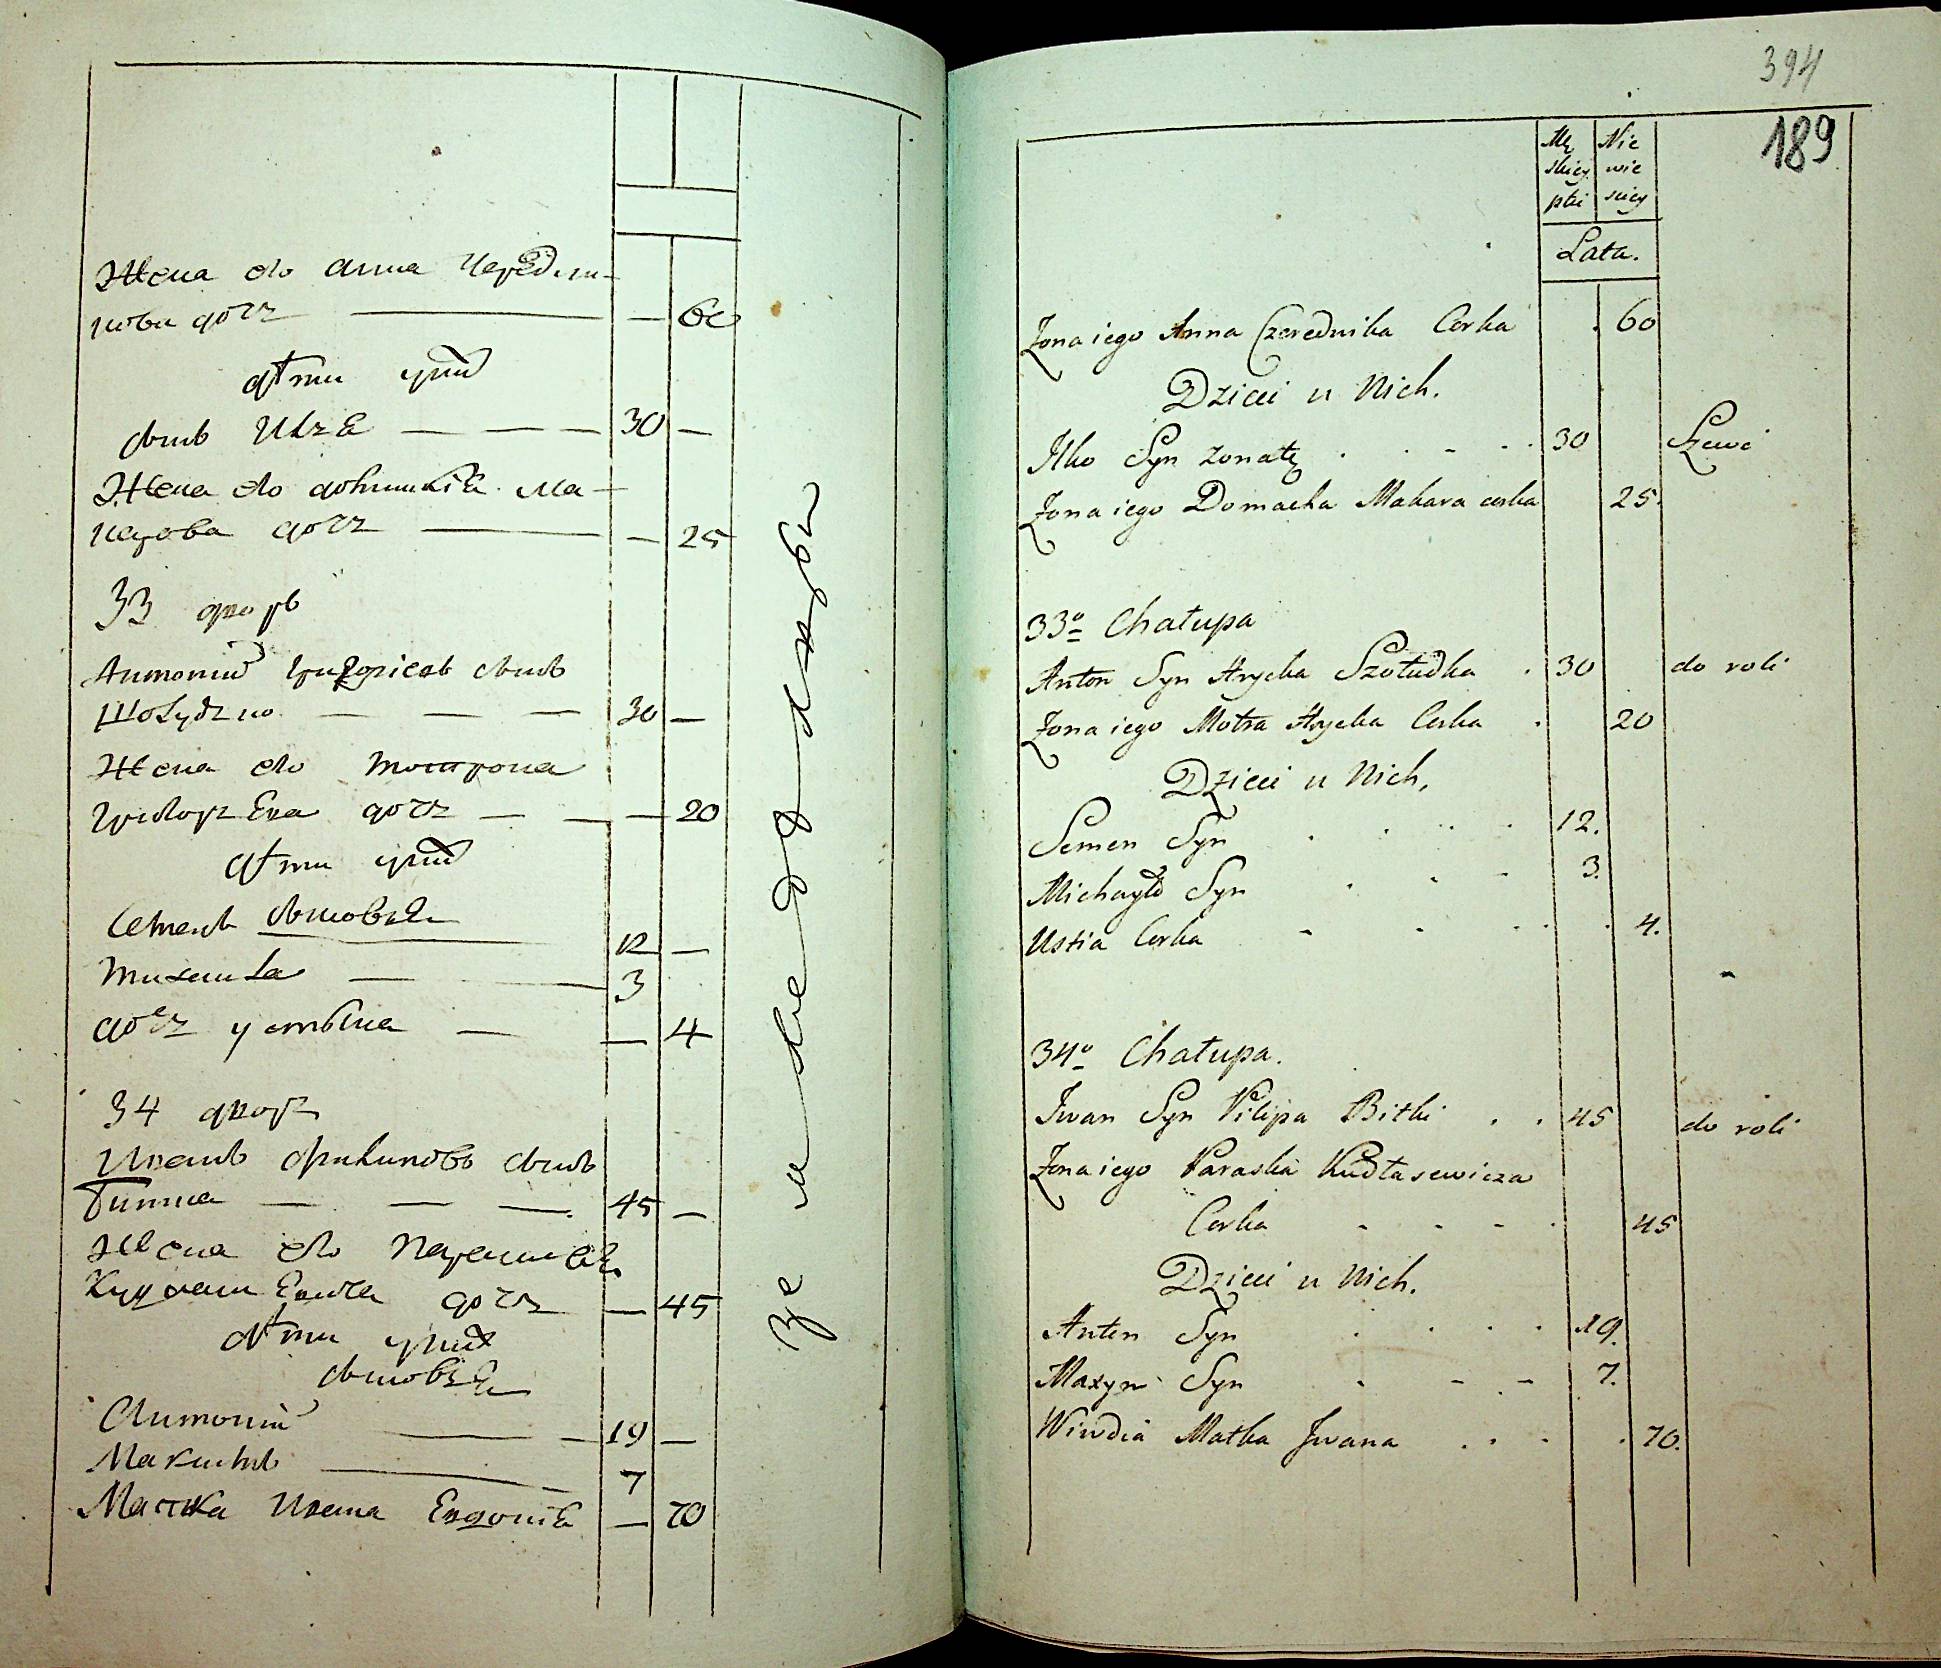 Жена его анна Чередни-
кова дочь — 60
дѣти у них
сынъ Илья — 30 —
Жена его домникія Ма-
карова дочь — 25
33 дворъ
Антоний григориевъ сынъ
Шолудко — 30 —
Жена его Мотрона
григорьева дочь — 20
дѣти у них
Семенъ сыновья 12 —
михайла — 3
дочь устина — 4
34 дворъ
Иванъ филиповъ сынъ
Битка — 45 —
Жена его Параскевія
Кудласевича дочь — 45
дѣти у них
сыновья
Антоний — 19 —
Максимъ — 7
Матка Ивана Евдокія — 70
394
189
Mę Nie
skiey wie
płci sciey
Lata.
Zona iego Anna Czerednika Corka . 60
Dzieci u Nich.
Ilko Syn zonaty . . - . 30 Szewc
Zona iego Domacha Makara corka 25.
33º Chałupa
Anton Syn Hrycka Szołudka . 30 do roli
Zona iego Motra Hrycka Corka . 20
Dzieci u Nich,
Semen Syn . . . . 12.
Michayło Syn . - - 3.
Ustia Corka - . . . . 4.
34º Chałupa.
Iwan Syn Filipa Bitki . . 45 do roli
Zona iego Paraska Kudłasewicza
Corka - - - . 45
Dzieci u Nich.
Anton Syn . . . . 19.
Maxym Syn . - . - 7.
Wiwdia Matka Iwana . . . . 70.